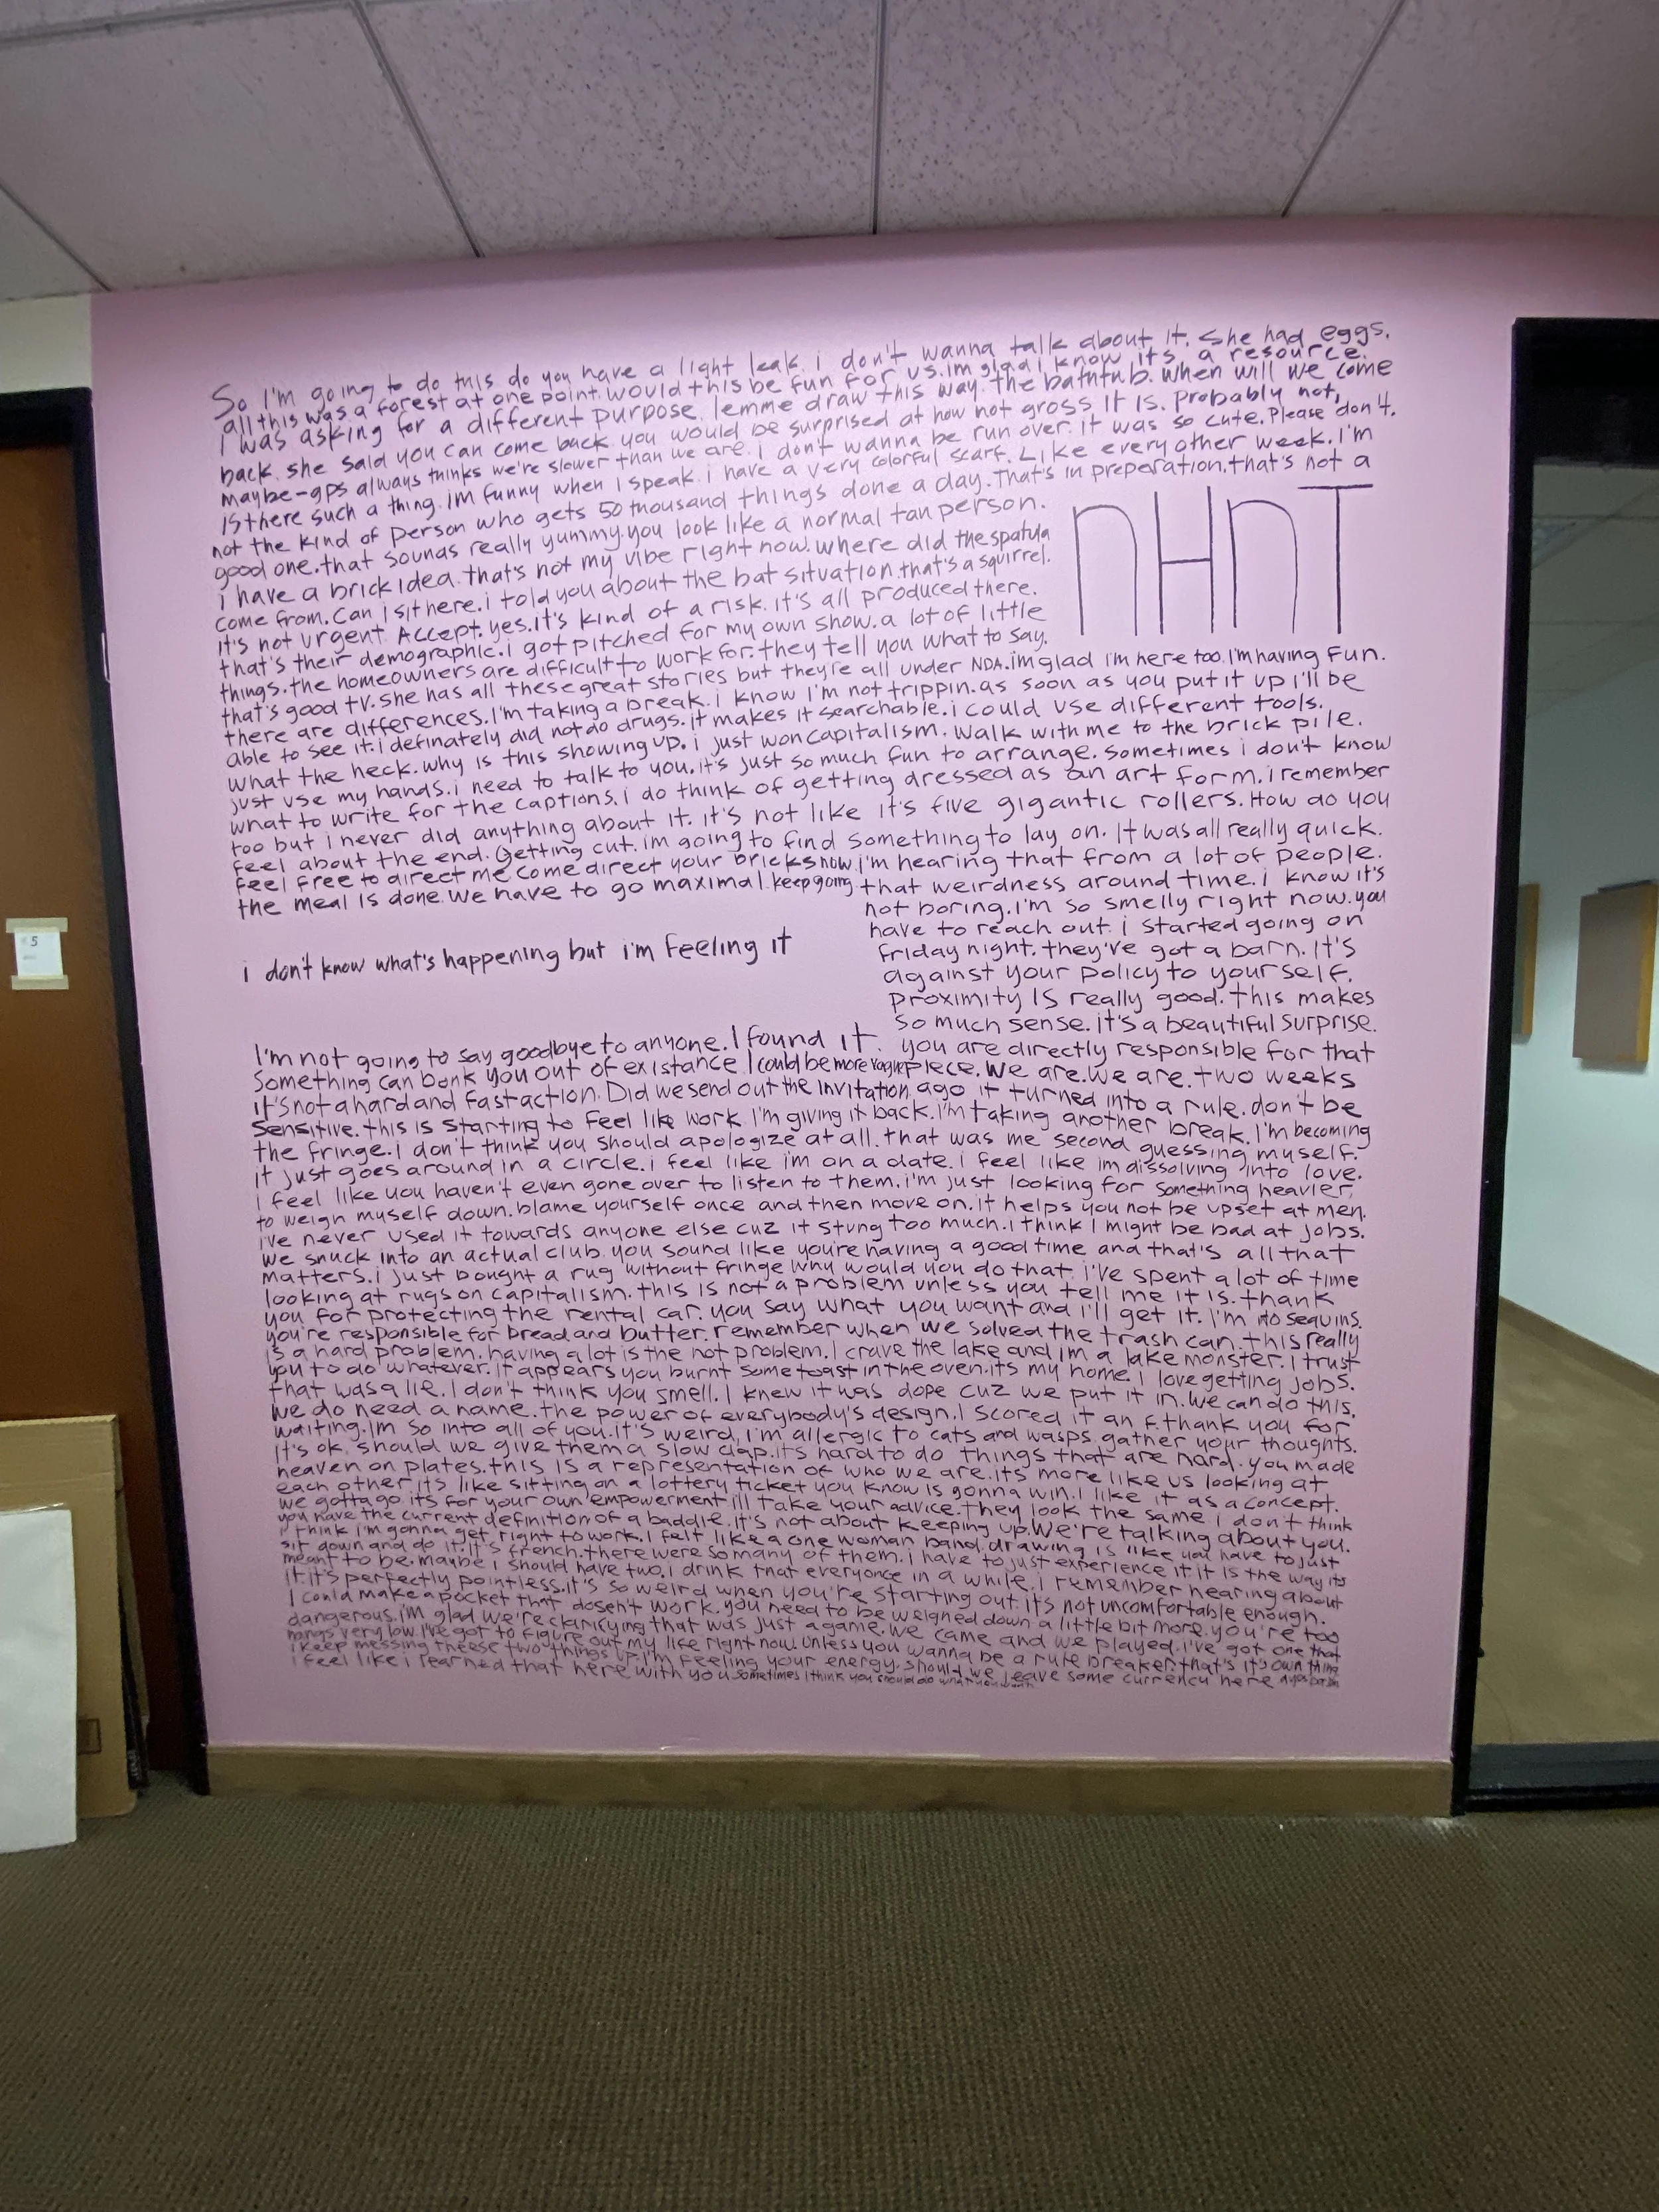 So I'm going to do this do you have a light leak. i don't wanna talk about it. She had eggs.
all this was a forest at one point. would this be fun for us. im glad i know. its a resource.
I was asking for a different purpose. lemme draw this way. the bathtub. when will we come
back. she said you can come back. you would be surprised at how not gross it is. probably not,
maybe-gps always thinks we're slower than we are. i don't wanna be run over. it was so cute. Please don't.
Is there such a thing. im funny when I speak. i have a very colorful scarf. Like every other week. I'm
not the kind of person who gets 50 thousand things done a day. That's in preparation. that's not a
good one. that sounds really yummy. you look like a normal tan person.
i have a brick idea. that's not my vibe right now. where did the spatula
come from. Can I sit here. i told you about the bat situation. that's a squirrel.
it's not urgent. Accept. yes. it's kind of a risk. it's all produced there.
that's their demographic. i got pitched for my own show. a lot of little
things. the homeowners are difficult to work for. they tell you what to say.
nHnT
that's good tv. she has all these great stories but they're all under NDA. im glad i'm here too. I'm having fun.
there are differences. I'm taking a break. i know I'm not trippin. as soon as you put it up i'll be
able to see it. i definately did not do drugs. it makes it searchable. i could use different tools.
what the heck. why is this showing up. i just won capitalism. walk with me to the brick pile.
just use my hands. i need to talk to you. it's just so much fun to arrange. sometimes i don't know
what to write for the captions. i do think of getting dressed as an art form. i remember
too but i never did anything about it. it's not like it's five gigantic rollers. How do you
feel about the end. Getting cut. im going to find something to lay on. It was all really quick.
feel free to direct me come direct your bricks now. i'm hearing that from a lot of people.
the meal is done. we have to go maximal. keep going that weirdness around time. i know it's
not boring. I'm so smelly right now. you
have to reach out. i started going on
friday night. they've got a barn. It's
against your policy to yourself.
proximity is really good. this makes
so much sense. it's a beautiful surprise.
i don't know what's happening but i'm feeling it
I'm not going to say goodbye to anyone. I found it. you are directly responsible for that
something can bonk you out of existance. I could be more vague piece. We are. we are. two weeks
it's not a hard and fast action. Did we send out the invitation ago it turned into a rule. don't be
sensitive. this is starting to feel like work. I'm giving it back. I'm taking another break. I'm becoming
the fringe. i don't think you should apologize at all. that was me second guessing myself.
it just goes around in a circle. i feel like i'm on a date. I feel like im dissolving into love.
I feel like you haven't even gone over to listen to them. i'm just looking for something heavier,
to weigh myself down. blame yourself once and then move on. it helps you not be upset at men.
i've never used it towards anyone else cuz it stung too much. i think I might be bad at jobs.
we snuck into an actual club. you sound like you're having a good time and that's all that
matters. i just bought a rug without fringe why would you do that. i've spent a lot of time
looking at rugs on capitalism. this is not a problem unless you tell me it is. thank
you for protecting the rental car. you say what you want and i'll get it. I'm no sequins.
you're responsible for bread and butter. remember when we solved the trash can. this really
is a hard problem. having a lot is the not problem. I crave the lake and im a lake monster. I trust
you to do whatever. it appears you burnt some toast in the oven. its my home. I love getting jobs.
that was a lie. I don't think you smell. I knew it was dope cuz we put it in. we can do this.
we do need a name. the power of everybody's design. I scored it an f. thank you for
waiting. Im so into all of you. it's weird, I'm allergic to cats and wasps. gather your thoughts.
it's ok. should we give them a slow clap. its hard to do things that are hard. you made
heaven on plates. this is a representation of who we are. its more like us looking at
each other. its like sitting on a lottery ticket you know is gonna win. I like it as a concept.
we gotta go. its for your own empowerment ill take your advice. they look the same i don't think
you have the current definition of a baddie. it's not about keeping up. We're talking about you.
i think i'm gonna get right to work. I felt like a one woman band. drawing is like you have to just
sit down and do it. it's french. there were so many of them. i have to just experience it. it is the way its
meant to be. maybe i should have two. i drink that everyonce in a while. i remember hearing about
it. it's perfectly pointless. it's so weird when you're starting out. it's not uncomfortable enough.
I could make a pocket that dosen't work. you need to be weighed down a little bit more. you're too
dangerous. i'm glad we're clarifying that was just a game. we came and we played. i've got one that
hangs very low. I've got to figure out my life right now. unless you wanna be a rule breaker. that's it's own thing
i keep messing theese two things up. I'm feeling your energy. should we leave some currency here
i feel like i learned that here with you. sometimes i think you should do what you want
5